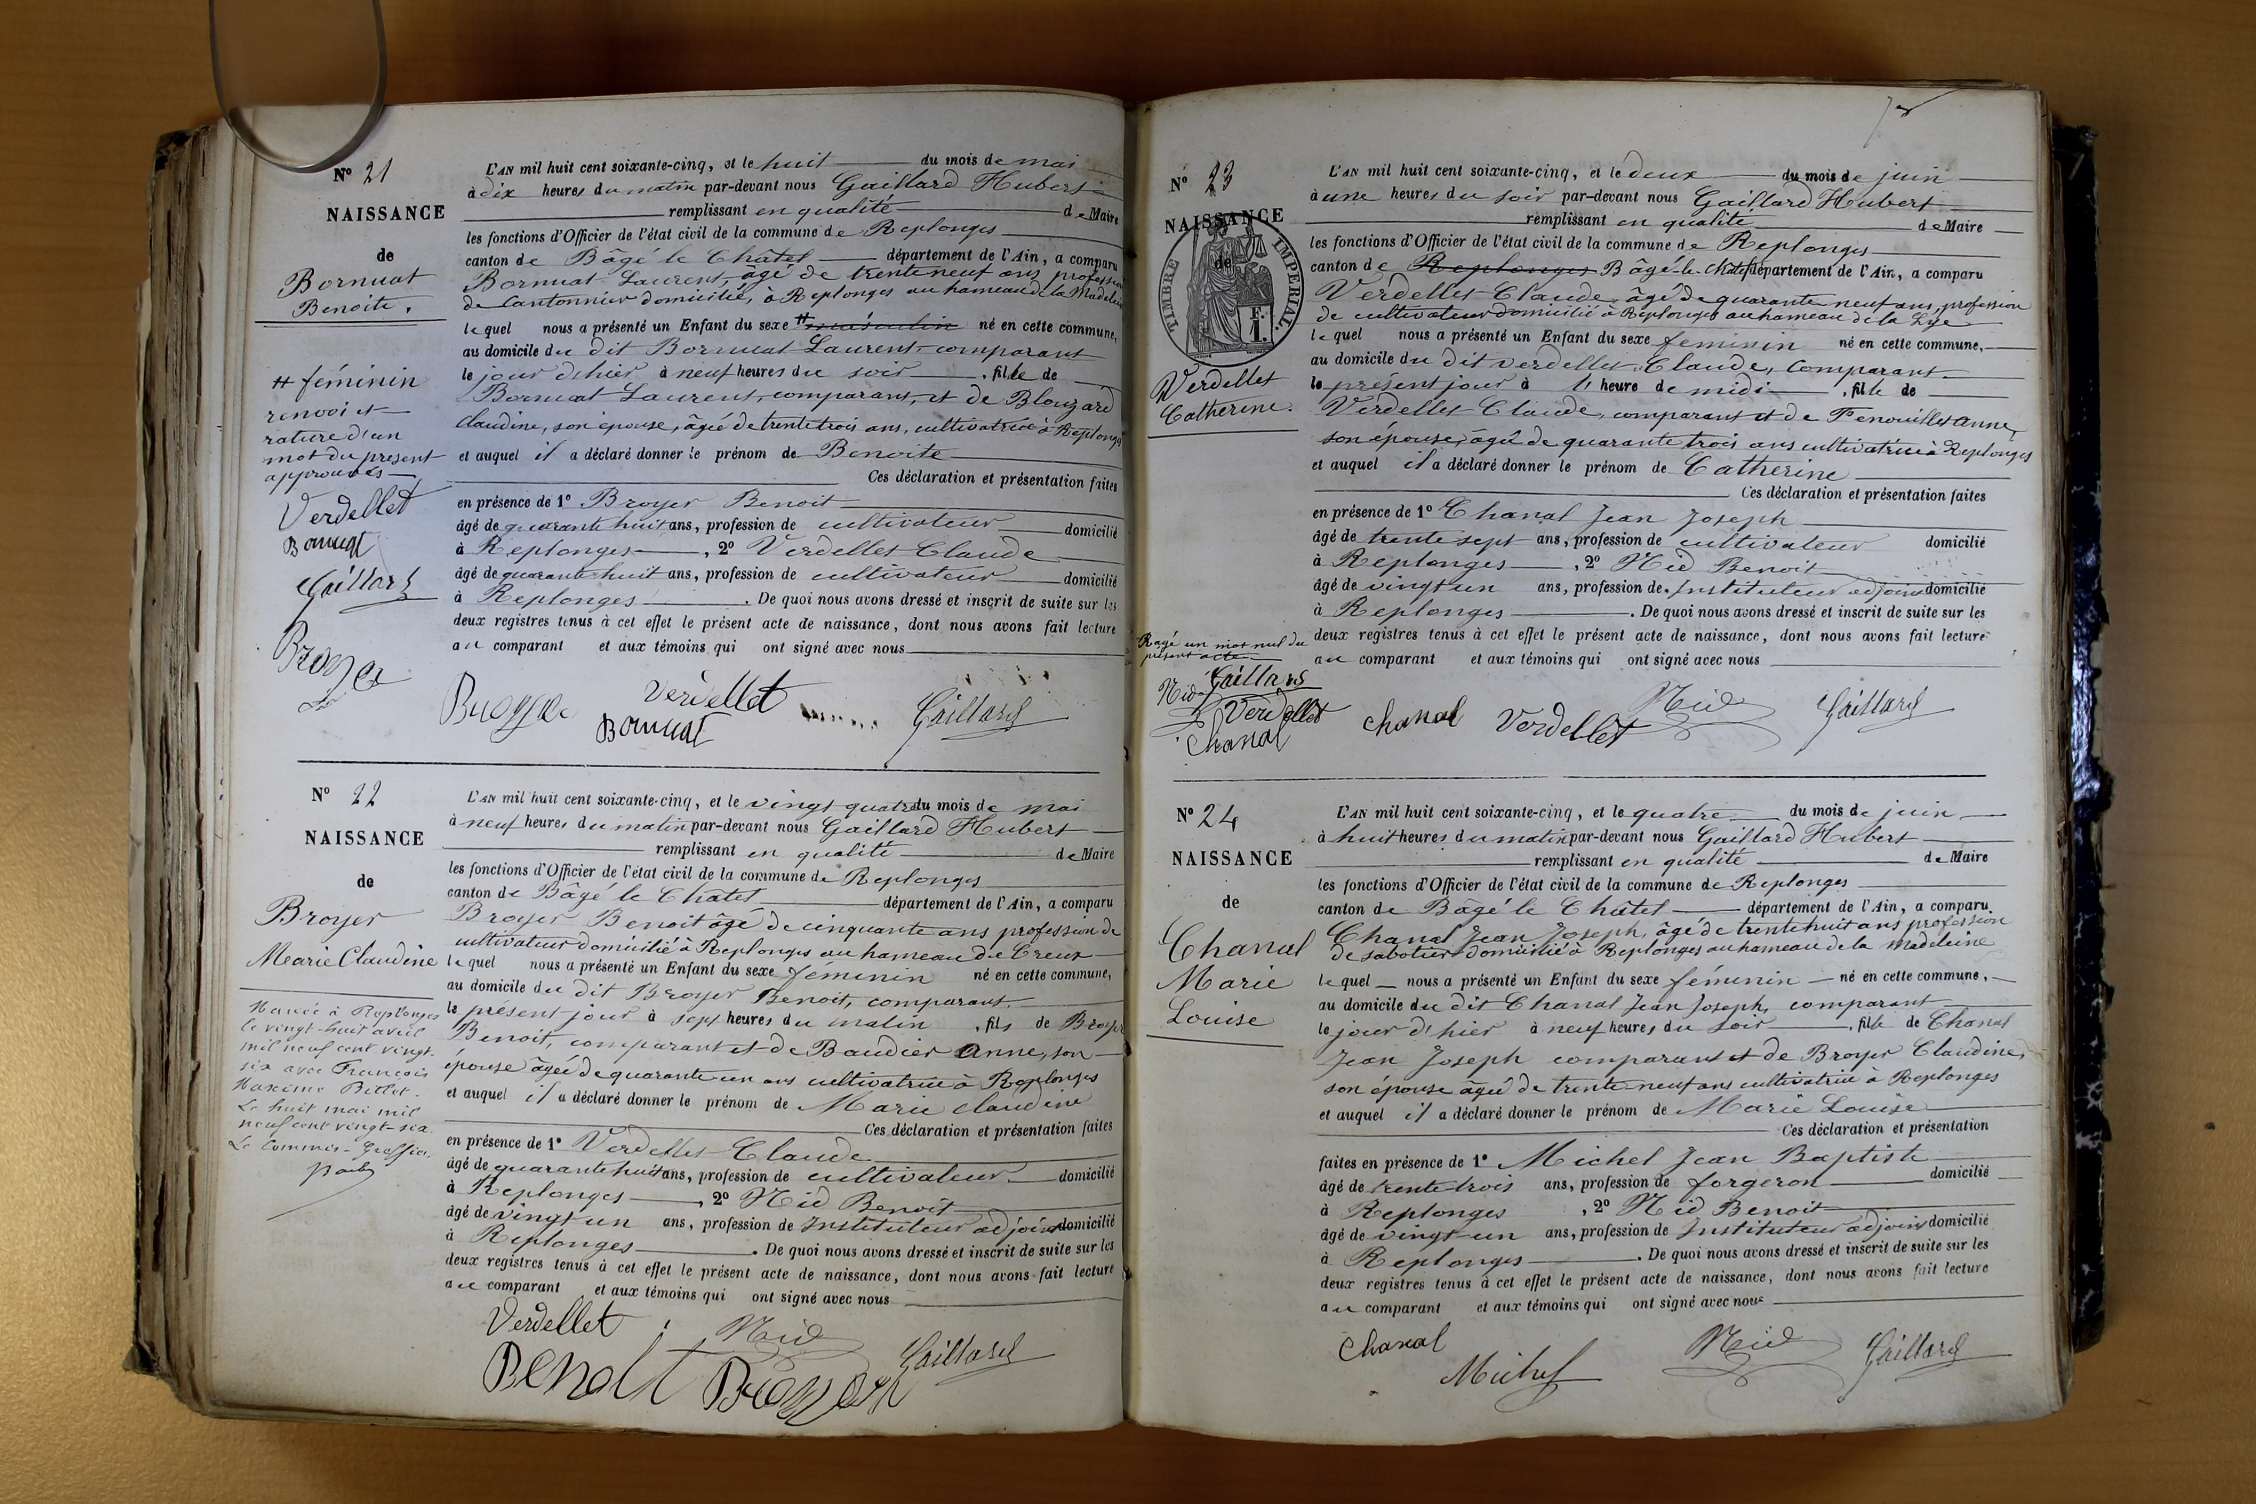 N° 21
NAISSANCE
de
Bornuat
Benoite.
# féminin
renvoi et
rature d'un
mot du present
approuvés
Verdellet
Bornuat
Gaillard
Broyer
L'AN mil huit cent soixante-cinq, et le huit du mois de mai
à dix heures du matin par-devant nous Gaillard Hubert
remplissant en qualité de Maire
les fonctions d'Officier de l'état civil de la commune de Replonges
canton de Bâgé le Châtel département de l'Ain, a comparu
Bornuat Laurent, âgé de trente neuf ans profession
de Cantonnier domicilié, à Replonges au hameau de la Madeleine
lequel nous a présenté un Enfant du sexe # masculin né en cette commune,
au domicile du dit Bornuat Laurent comparant
le jour d'hier à neuf heures du soir, fille de
Bornuat Laurent, comparant, et de Blouzard
Claudine, son épouse, âgée de trente trois ans, cultivatrice à Replonges
et auquel il a déclaré donner le prénom de Benoite
Ces déclaration et présentation faites
en présence de 1° Broyer Benoit
âgé de quarante huit ans, profession de cultivateur domicilié
à Replonges, 2° Verdellet Claude
âgé de quarante-huit ans, profession de cultivateur domicilié
à Replonges. De quoi nous avons dressé et inscrit de suite sur les
deux registres tenus à cet effet le présent acte de naissance, dont nous avons fait lecture
au comparant et aux témoins qui ont signé avec nous
Broyer Verdellet Bornuat Gaillard
N° 22
NAISSANCE
de
Broyer
Marie Claudine
Mariée à Replonges
le vingt-huit avril
mil neuf cent vingt-
six avec François
Maxime Billet.
Le huit mai mil
neuf cent vingt-six
Le Commis-Greffier
L'AN mil huit cent soixante-cinq, et le vingt quatre du mois de mai
à neuf heures du matin par-devant nous Gaillard Hubert
remplissant en qualité de Maire
les fonctions d'Officier de l'état civil de la commune de Replonges
canton de Bâgé le Châtel département de l'Ain, a comparu
Broyer Benoit âgé de cinquante ans profession de
cultivateur domicilié à Replonges au hameau de Creux
lequel nous a présenté un Enfant du sexe féminin né en cette commune,
au domicile du dit Broyer Benoit, comparant
le présent jour à sept heures du matin, fils de Broyer
Benoit, comparant et de Baudier Anne, son
épouse âgée de quarante un ans cultivatrice à Replonges
et auquel il a déclaré donner le prénom de Marie Claudine
Ces déclaration et présentation faites
en présence de 1° Verdellet Claude
âgé de quarante huit ans, profession de cultivateur domicilié
à Replonges, 2° Nid Benoit
âgé de vingt un ans, profession de Instituteur adjoint domicilié
à Replonges. De quoi nous avons dressé et inscrit de suite sur les
deux registres tenus à cet effet le présent acte de naissance, dont nous avons fait lecture
au comparant et aux témoins qui ont signé avec nous
Verdellet Nid Gaillard
Benoit Broyer
N° 23
NAISSANCE
de
TIMBRE IMPERIAL
1 F.
Verdellet
Catherine.
Rayé un mot nul du
présent acte
Nid Gaillard
Verdellet
Chanal
L'AN mil huit cent soixante-cinq, et le deux du mois de juin
à une heures du soir par-devant nous Gaillard Hubert
remplissant en qualité de Maire
les fonctions d'Officier de l'état civil de la commune de Replonges
canton de Replonges Bâgé-le-Châtel département de l'Ain, a comparu
Verdellet Claude, âgé de quarante neuf ans, profession
de cultivateur domicilié à Replonges au hameau de la Lye
lequel nous a présenté un Enfant du sexe feminin né en cette commune,
au domicile du dit Verdellet Claude, comparant
le présent jour à l' heure de midi, fille de
Verdellet Claude, comparant et de Fenouillet Anne,
son épouse, âgée de quarante trois ans cultivatrice à Replonges
et auquel il a déclaré donner le prénom de Catherine
Ces déclaration et présentation faites
en présence de 1° Chanal Jean Joseph
âgé de trente sept ans, profession de cultivateur domicilié
à Replonges, 2° Nid Benoit
âgé de vingt un ans, profession de Instituteur adjoint domicilié
à Replonges. De quoi nous avons dressé et inscrit de suite sur les
deux registres tenus à cet effet le présent acte de naissance, dont nous avons fait lecture
au comparant et aux témoins qui ont signé avec nous
Chanal Verdellet Nid Gaillard
N° 24
NAISSANCE
de
Chanal
Marie
Louise
L'AN mil huit cent soixante-cinq, et le quatre du mois de juin
à huit heures du matin par-devant nous Gaillard Hubert
remplissant en qualité de Maire
les fonctions d'Officier de l'état civil de la commune de Replonges
canton de Bâgé le Châtel département de l'Ain, a comparu
Chanal Jean Joseph, âgé de trente huit ans profession
de sabotier domicilié à Replonges au hameau de la Madeleine
lequel nous a présenté un Enfant du sexe féminin né en cette commune,
au domicile du dit Chanal Jean Joseph, comparant
le jour d'hier à neuf heures du soir, fille de Chanal
Jean Joseph comparant et de Broyer Claudine,
son épouse âgée de trente-neuf ans cultivatrice à Replonges
et auquel il a déclaré donner le prénom de Marie Louise
Ces déclaration et présentation
faites en présence de 1° Michel Jean Baptiste
âgé de trente trois ans, profession de forgeron domicilié
à Replonges, 2° Nid Benoit
âgé de vingt-un ans, profession de Instituteur adjoint domicilié
à Replonges. De quoi nous avons dressé et inscrit de suite sur les
deux registres tenus à cet effet le présent acte de naissance, dont nous avons fait lecture
au comparant et aux témoins qui ont signé avec nous
Chanal Michel Nid Gaillard